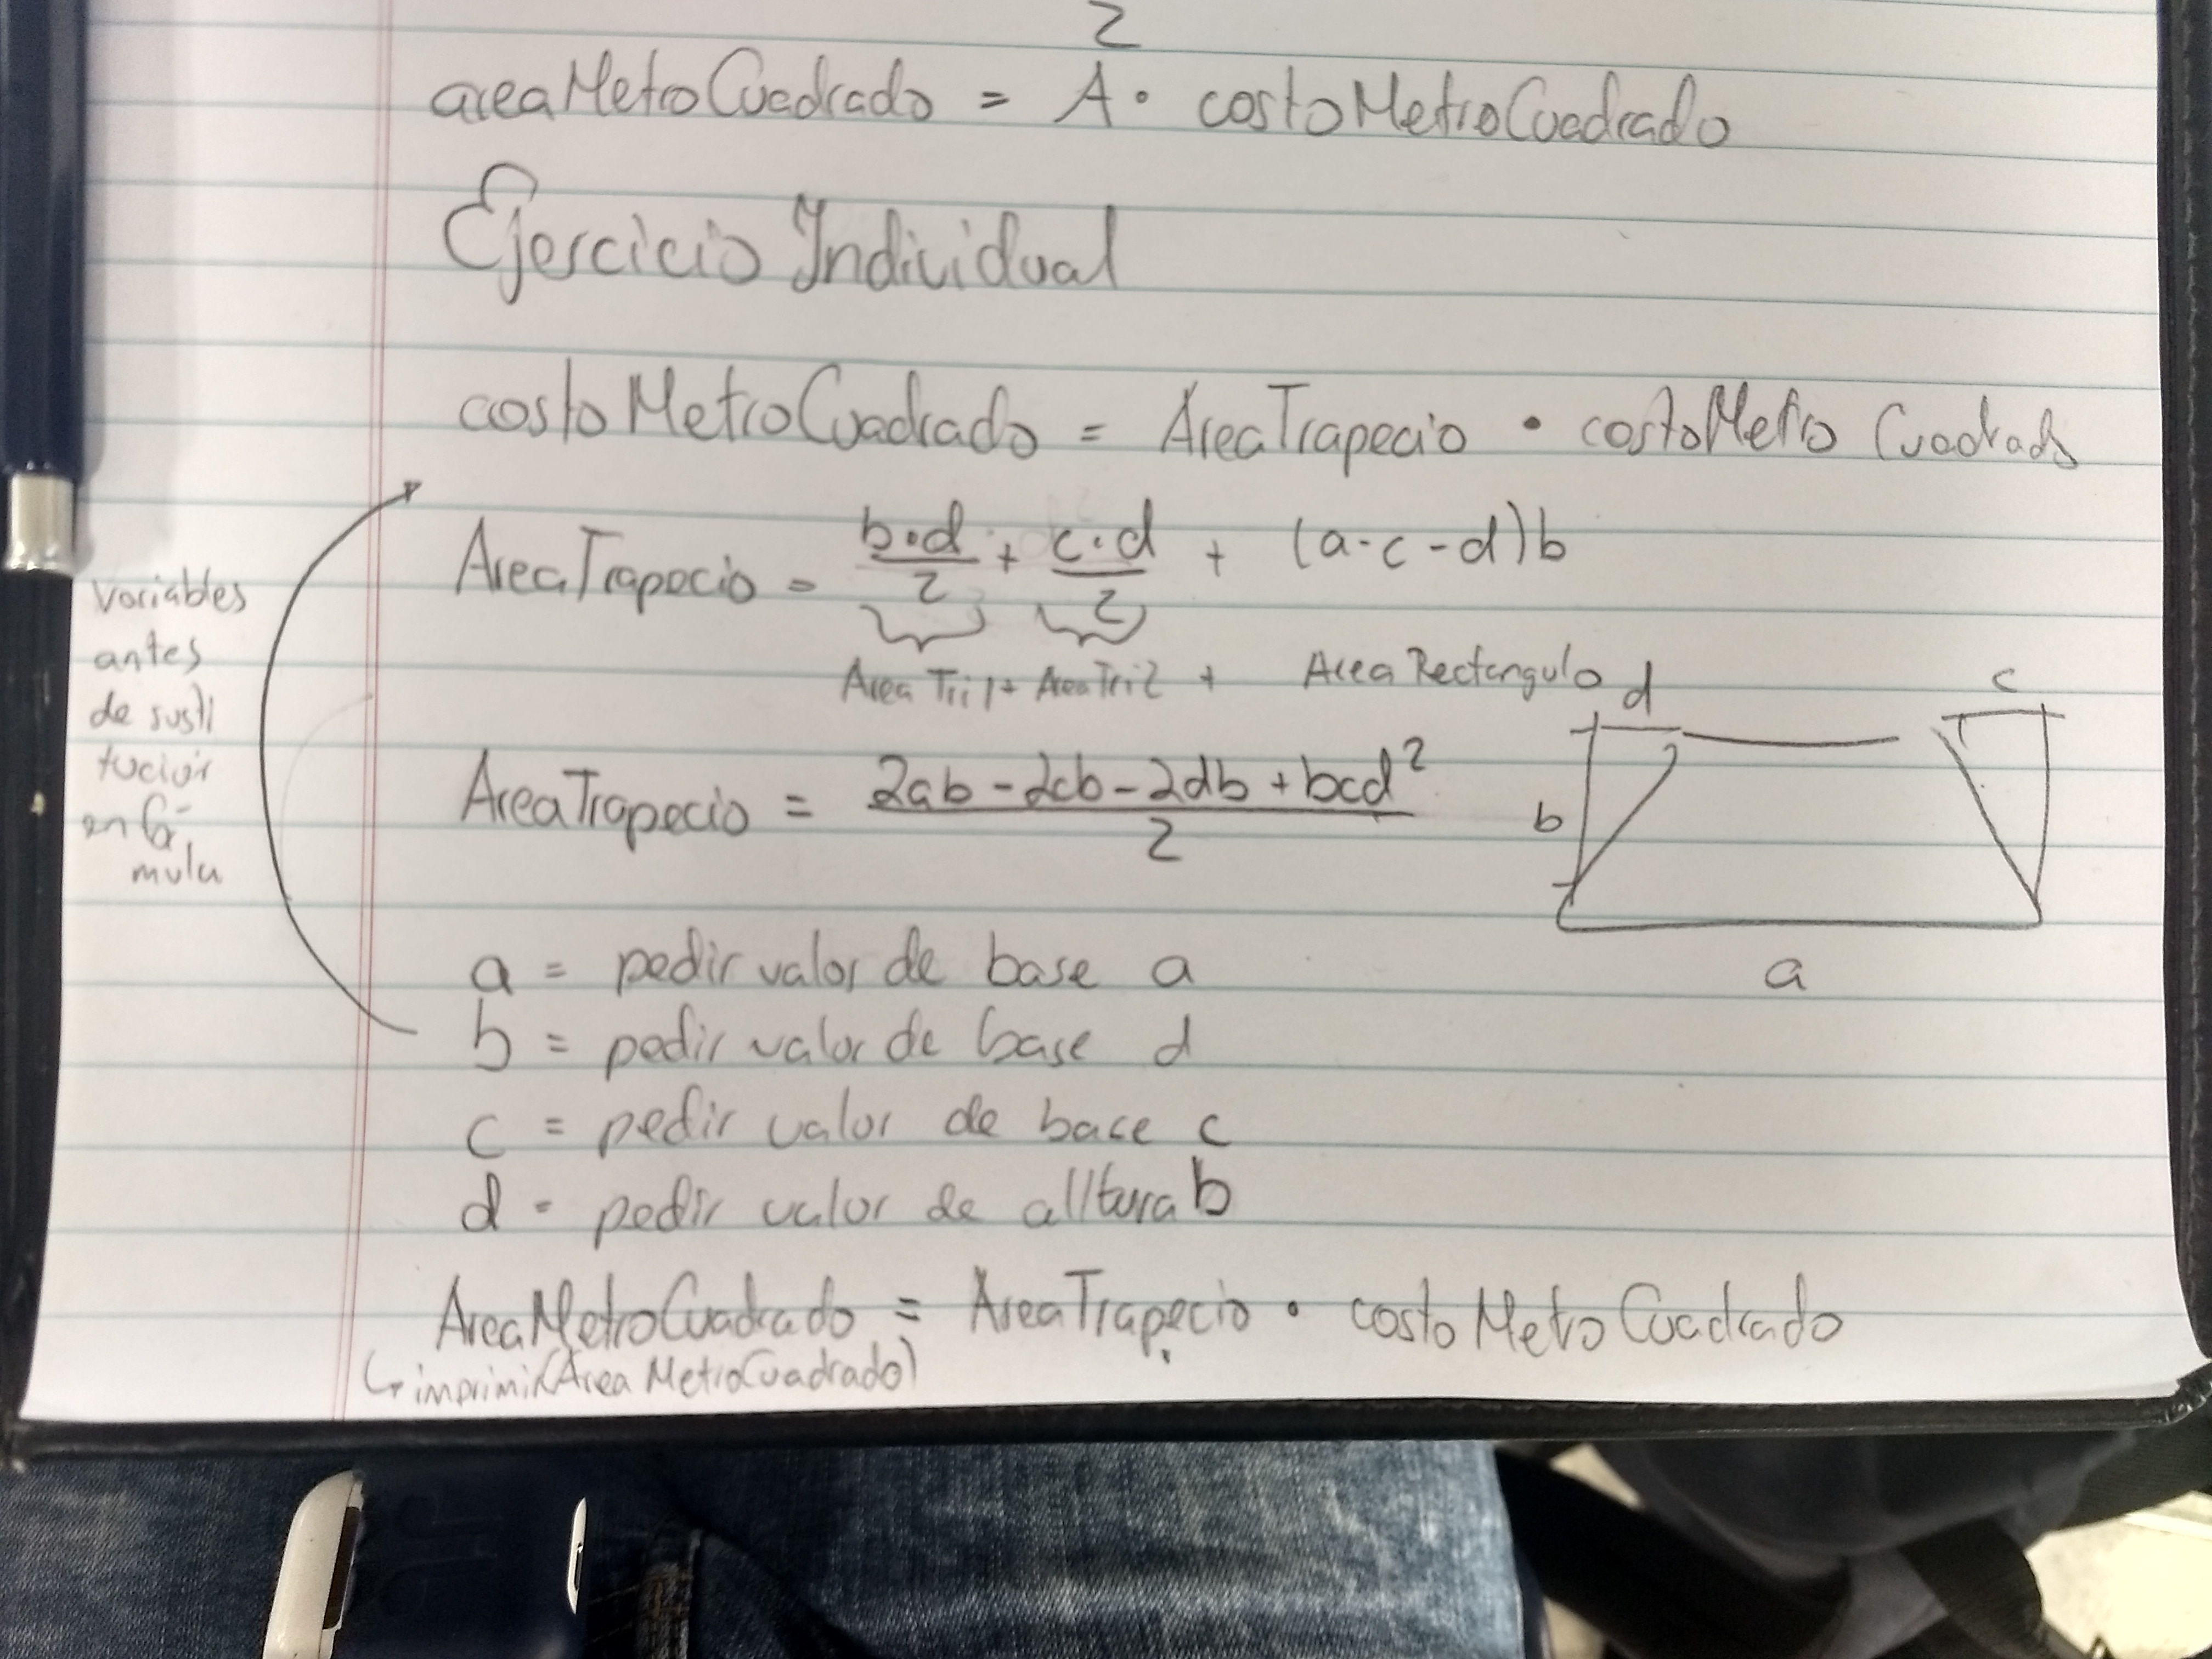 2
areaMetroCuadrado = A · costoMetroCuadrado
Ejercicio Individual
costoMetroCuadrado = AreaTrapecio · costoMetro Cuadrado
AreaTrapecio = b·d/2 + c·d/2 + (a-c-d)b
Area Tri1+ AreaTri2 + Area Rectangulo
d
c
AreaTrapecio = 2ab - 2cb - 2db + bcd²/2
b
a
variables
antes
de susti
tución
en fór
mula
a = pedir valor de base a
b = pedir valor de base d
c = pedir valor de base c
d = pedir valor de alltura b
AreaMetroCuadrado = AreaTrapecio · costoMetroCuadrado
↳ imprimir(Area MetroCuadrado)